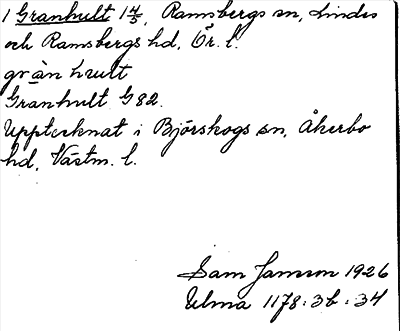 1 Granhult 1 4/5, Ramsbergs sn, Lindes
och Ramsbergs hd, Ör. l.
gràn hult
Granhult G82.
Upptecknat i Björskogs sn, Åkerbo
hd, Västm. l.
Sam Jansson 1926
Ulma 1178:3b:34